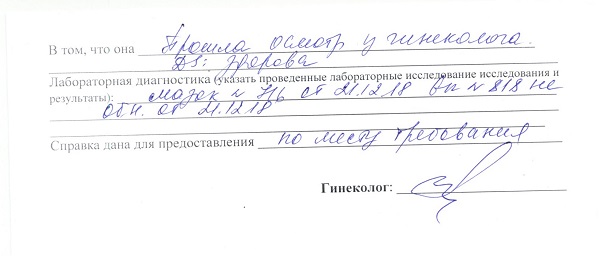 В том, что она Прошла осмотр у гинеколога.
DS: здорова
Лабораторная диагностика (указать проведенные лабораторные исследование исследования и
результаты): мазок № 776 от 21.12.18 вп № 818 не
обн. от 21.12.18
Справка дана для предоставления по месту требования
Гинеколог: